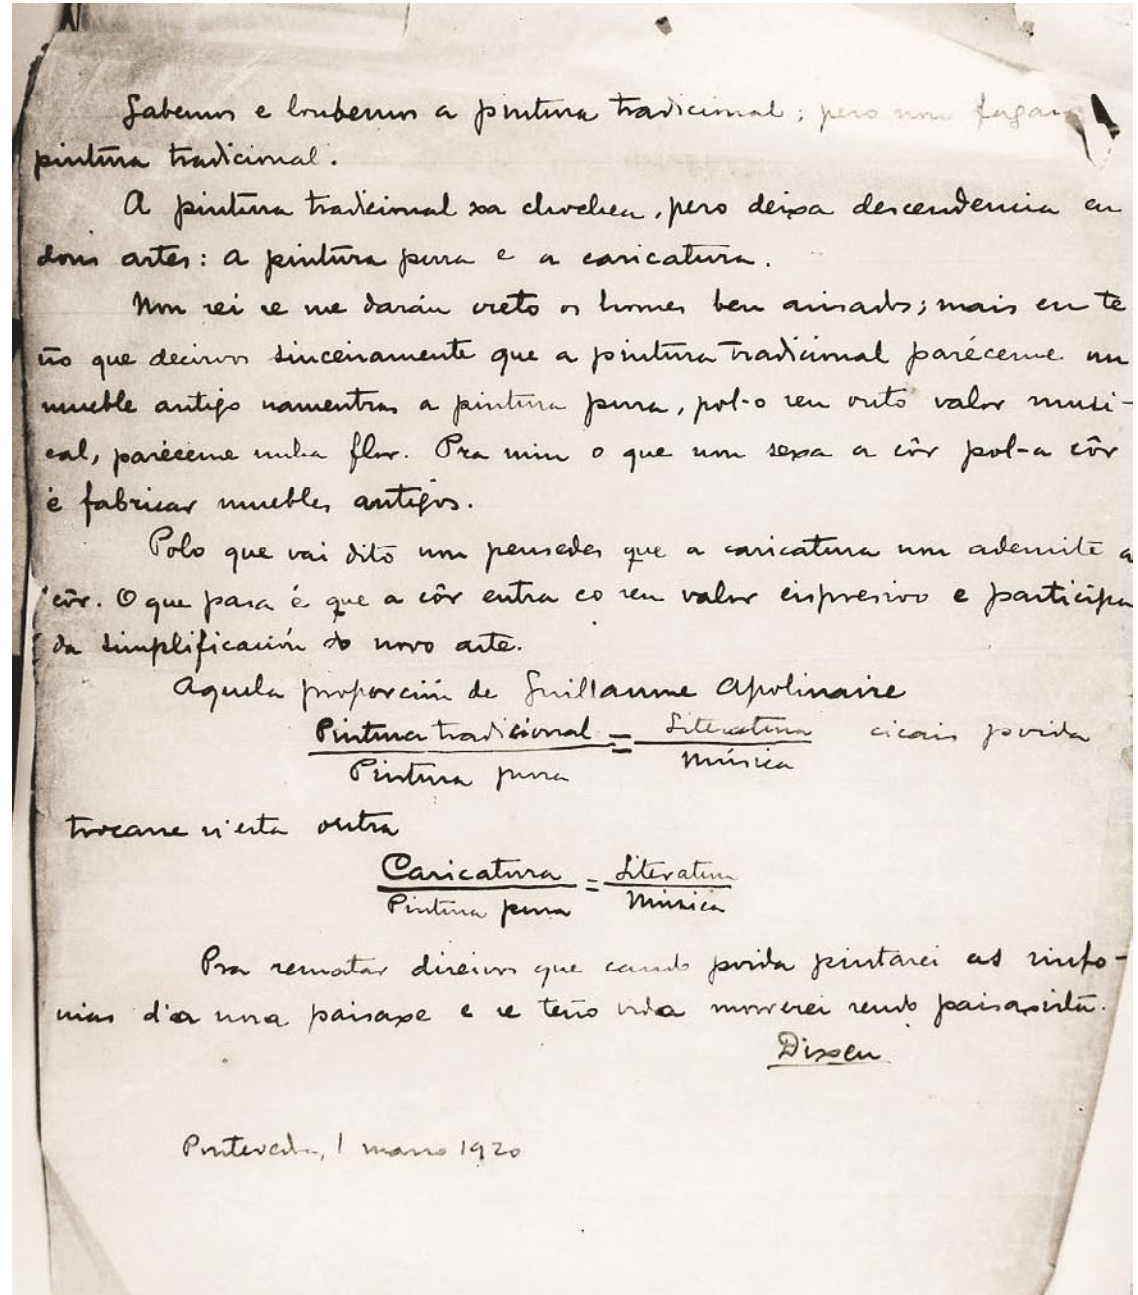 Gabemos e loubemos a pintura tradicional; pero non fagamos
pintura tradicional.
A pintura tradicional xa chochea, pero deixa descendencia en
dous artes: a pintura pura e a caricatura.
Non sei se me darán creto os homes ben avisados; mais eu te
ño que decirvos sinceiramente que a pintura tradicional paréceme un
mueble antigo namentras a pintura pura, pol-o seu outo valor musi-
cal, paréceme unha flor. Pra min o que non sexa a côr pol-a côr
é fabricar muebles antigos.
Polo que vai dito non pensedes que a caricatura non ademite a
côr. O que pasa é que a côr entra co seu valor eispresivo e participa
da simplificación do novo arte.
Aquela proporción de Guillaume Apolinaire
Pintura tradicional = Literatura cicais poida
Pintura pura Música
trocarse n'esta outra
Caricatura = Literatura
Pintura pura Música
Pra rematar direivos que cando poida pintarei as sinfo-
nias d'a nosa paisaxe e se teño vida morrerei sendo paisaxista.
Dixen
Pontevedra, 1 marzo 1920